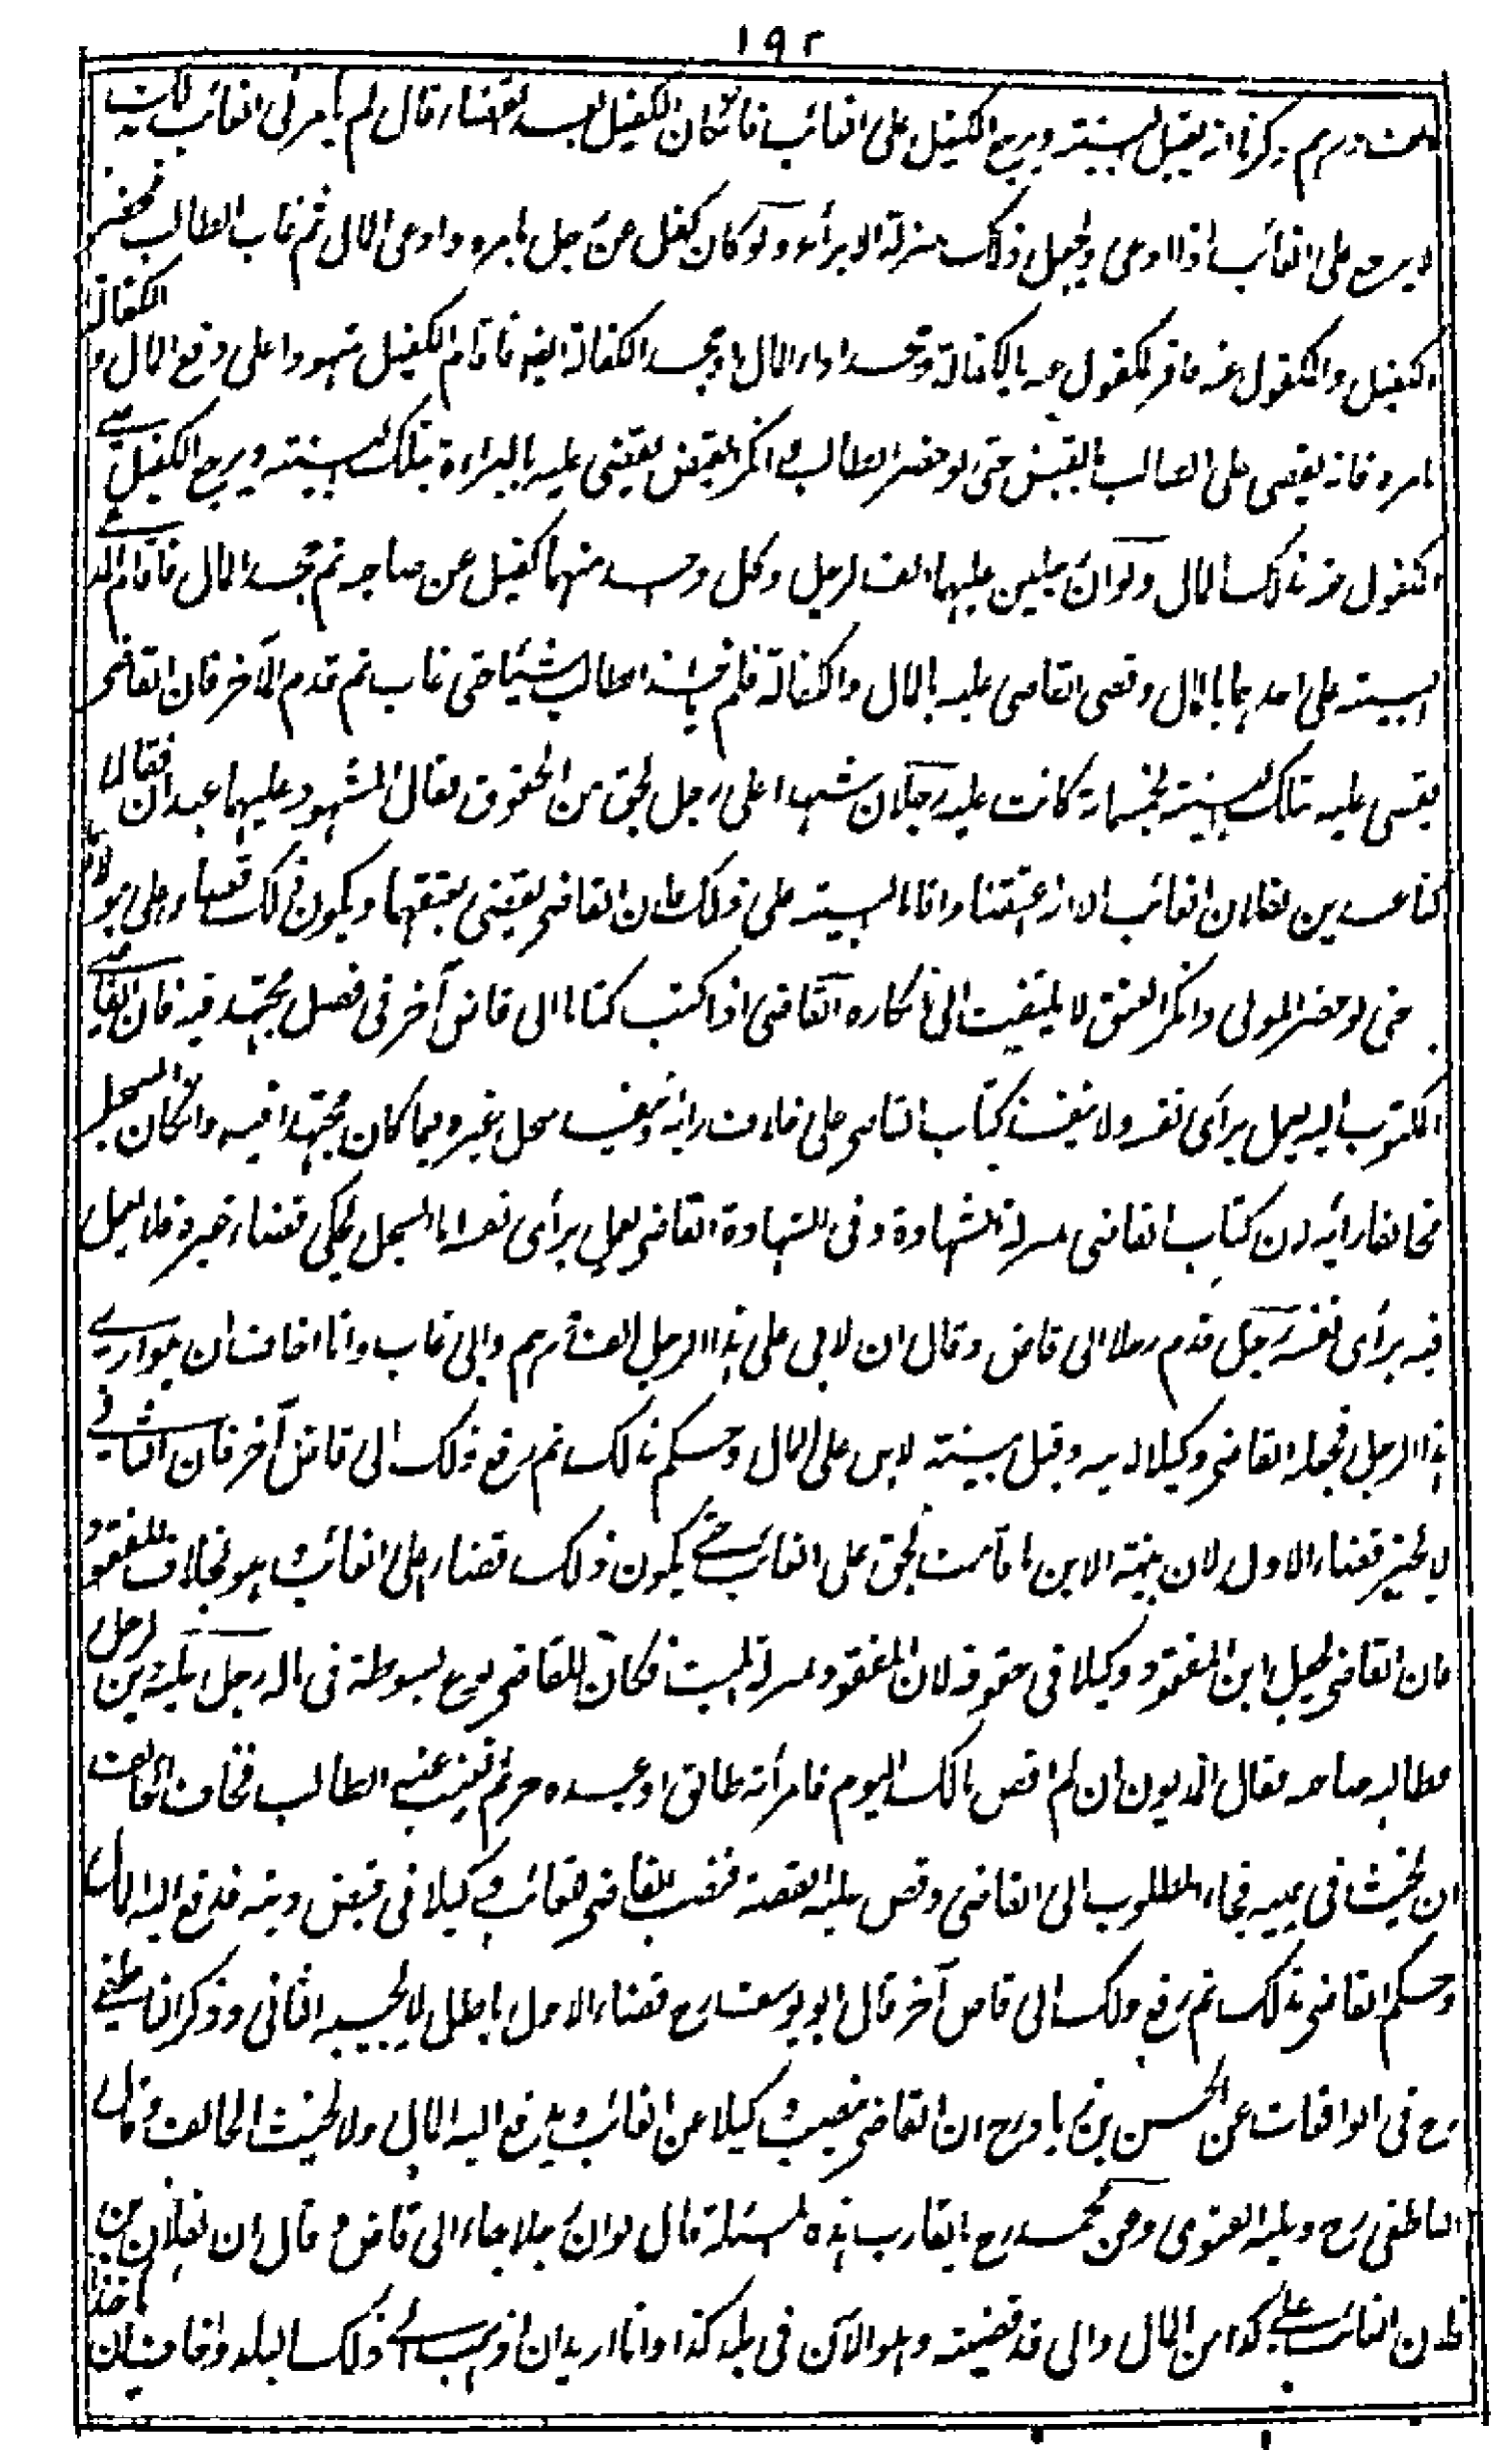 ١٩٢
درهم ذكرنا انه يقبل البينة ويرجع الكفيل على الغائب فان كان الكفيل بعد القضاء قال لم يأمرني الغائب
لا يرجع على الغائب اذا ادعى ويجعل ذلك بمنزلة الابراء ولو كان كفل عن رجل بامره وادعى المال ثم غاب الطالب فحضر
الكفيل والمكفول عنه فاقر المكفول عنه بالكفالة وجحد اداء المال او جحد الكفالة ايضا فاقام الكفيل شهودا على دفع المال والكفالة
بامره فانه يقضى على الطالب بالقبض حتى لو حضر الطالب وانكر القبض يقضى عليه بالبراءة بتلك البينة ويرجع الكفيل على
المكفول عنه بذلك المال ولو ان رجلين عليهما الف لرجل وكل واحد منهما كفيل عن صاحبه ثم جحد المال فاقام
البينة على احدهما بالمال وقضى القاضى عليه بالمال والكفالة فلم يأخذ الطالب شيئا حتى غاب ثم قدم الآخر فان القاضى
يقضى عليه بتلك البينة بخمسمائة كانت عليه رجلان شهدا على رجل بحق من الحقوق فقال المشهود عليه هما عبدان فقالا
كنا عبدين لفلان الغائب الا انه اعتقنا واقاما البينة على ذلك فان القاضى يقضى بعتقهما ويكون ذلك قضاء على مولاهما
حتى لو حضر المولى وانكر العتق لا يلتفت الى انكاره القاضى اذا كتب كتابا الى قاض آخر فى فصل مجتهد فيه فان القاضى
المكتوب اليه يعمل برأى نفسه ولا ينفذ كتاب القاضى على خلاف رأيه وينفذ سجل غيره فيما كان مجتهدا فيه وان كان السجل
مخالفا رأيه لان كتاب القاضى بمنزلة الشهادة وفى الشهادة القاضى يعمل برأى نفسه اما السجل يحكى قضاء غيره فلا يعمل
فيه برأى نفسه رجل قدم رجلا الى قاض وقال ان لابى على هذا الرجل الف درهم وابى غائب وانا اخاف ان يتوارى
هذا الرجل فجعله القاضى وكيلا لابيه وقبل بينة الابن على المال وحكم بذلك ثم رفع ذلك الى قاض آخر فان الثانى
لا يجيز قضاء الاول لان بينة الابن ما قامت بحق على الغائب حتى يكون ذلك قضاء على الغائب وهو بخلاف المفقود
فان القاضى يجعل ابن المفقود وكيلا فى حقوقه لان المفقود بمنزلة الميت فكان للقاضى نوع بسوطة فى ماله رجل عليه دين لرجل
فطالبه صاحبه فقال المديون ان لم اقض مالك اليوم فامرأته طالق او عبده حر ثم تغيب عنه الطالب فخاف الحالف
ان يحنث فى يمينه فجاء المطلوب الى القاضى وقص عليه القصة فنصب القاضى للغائب وكيلا فى قبض دينه فدفع اليه المال
وحكم القاضى بذلك ثم رفع ذلك الى قاض آخر قال ابو يوسف رح قضاء الاول باطل لا يجيزه الثانى وذكر الناطفى
رح فى الواقعات عن الحسن بن زياد رح ان القاضى ينصب وكيلا عن الغائب ويدفع اليه المال ولا يحنث الحالف وقال
الناطفى رح وعليه الفتوى وعن محمد رح ما يقارب هذه المسئلة قال لو ان رجلا جاء الى قاض وقال ان لفلان بن
فلان الغائب على كذا من المال وانى قد قضيته وهو الآن فى بلد كذا وانا اريد ان اذهب الى ذلك البلد واخاف ان يأخذ